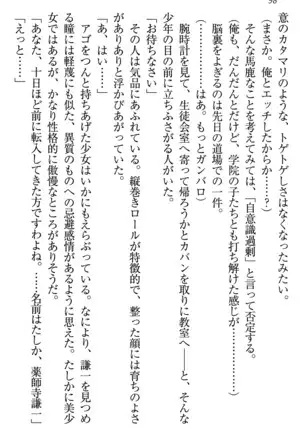 98
意のカタマリのような、トゲトゲしさはなくなったみたい。
(まさか。俺とエッチしたからか……?)
そんな馬鹿なことを考えてみては、「自意識過剰」と言って否定する。
(俺も、だんだんとだけど、学院の子たちとも打ち解けた感じが………)
脳裏をよぎるのは先日の道場での一件。
(………はぁ。もっとガンバロ)
腕時計を見て、生徒会室へ寄って帰ろうかとカバンを取りに教室へ――と、そんな
少年の目の前に立ちふさがる人がいた。
「お待ちなさい」
その人は気品にあふれている。縦巻きロールが特徴的で、整った顔には育ちのよさ
がありありと浮かびあがっていた。
「あ、はい……」
アゴをつんと持ちあげた少女はいかにもえらぶっている。なにより、謙一を見つめ
る瞳には軽蔑にも似た、異質のものへの忌避感情があるように思えた。たしかに美少
女ではあるが、かなり性格的に傲慢なところがありそうだ。
「あなた、十日ほど前に転入してきた方ですわよね。……名前はたしか、薬師寺謙一」
「えっと……」